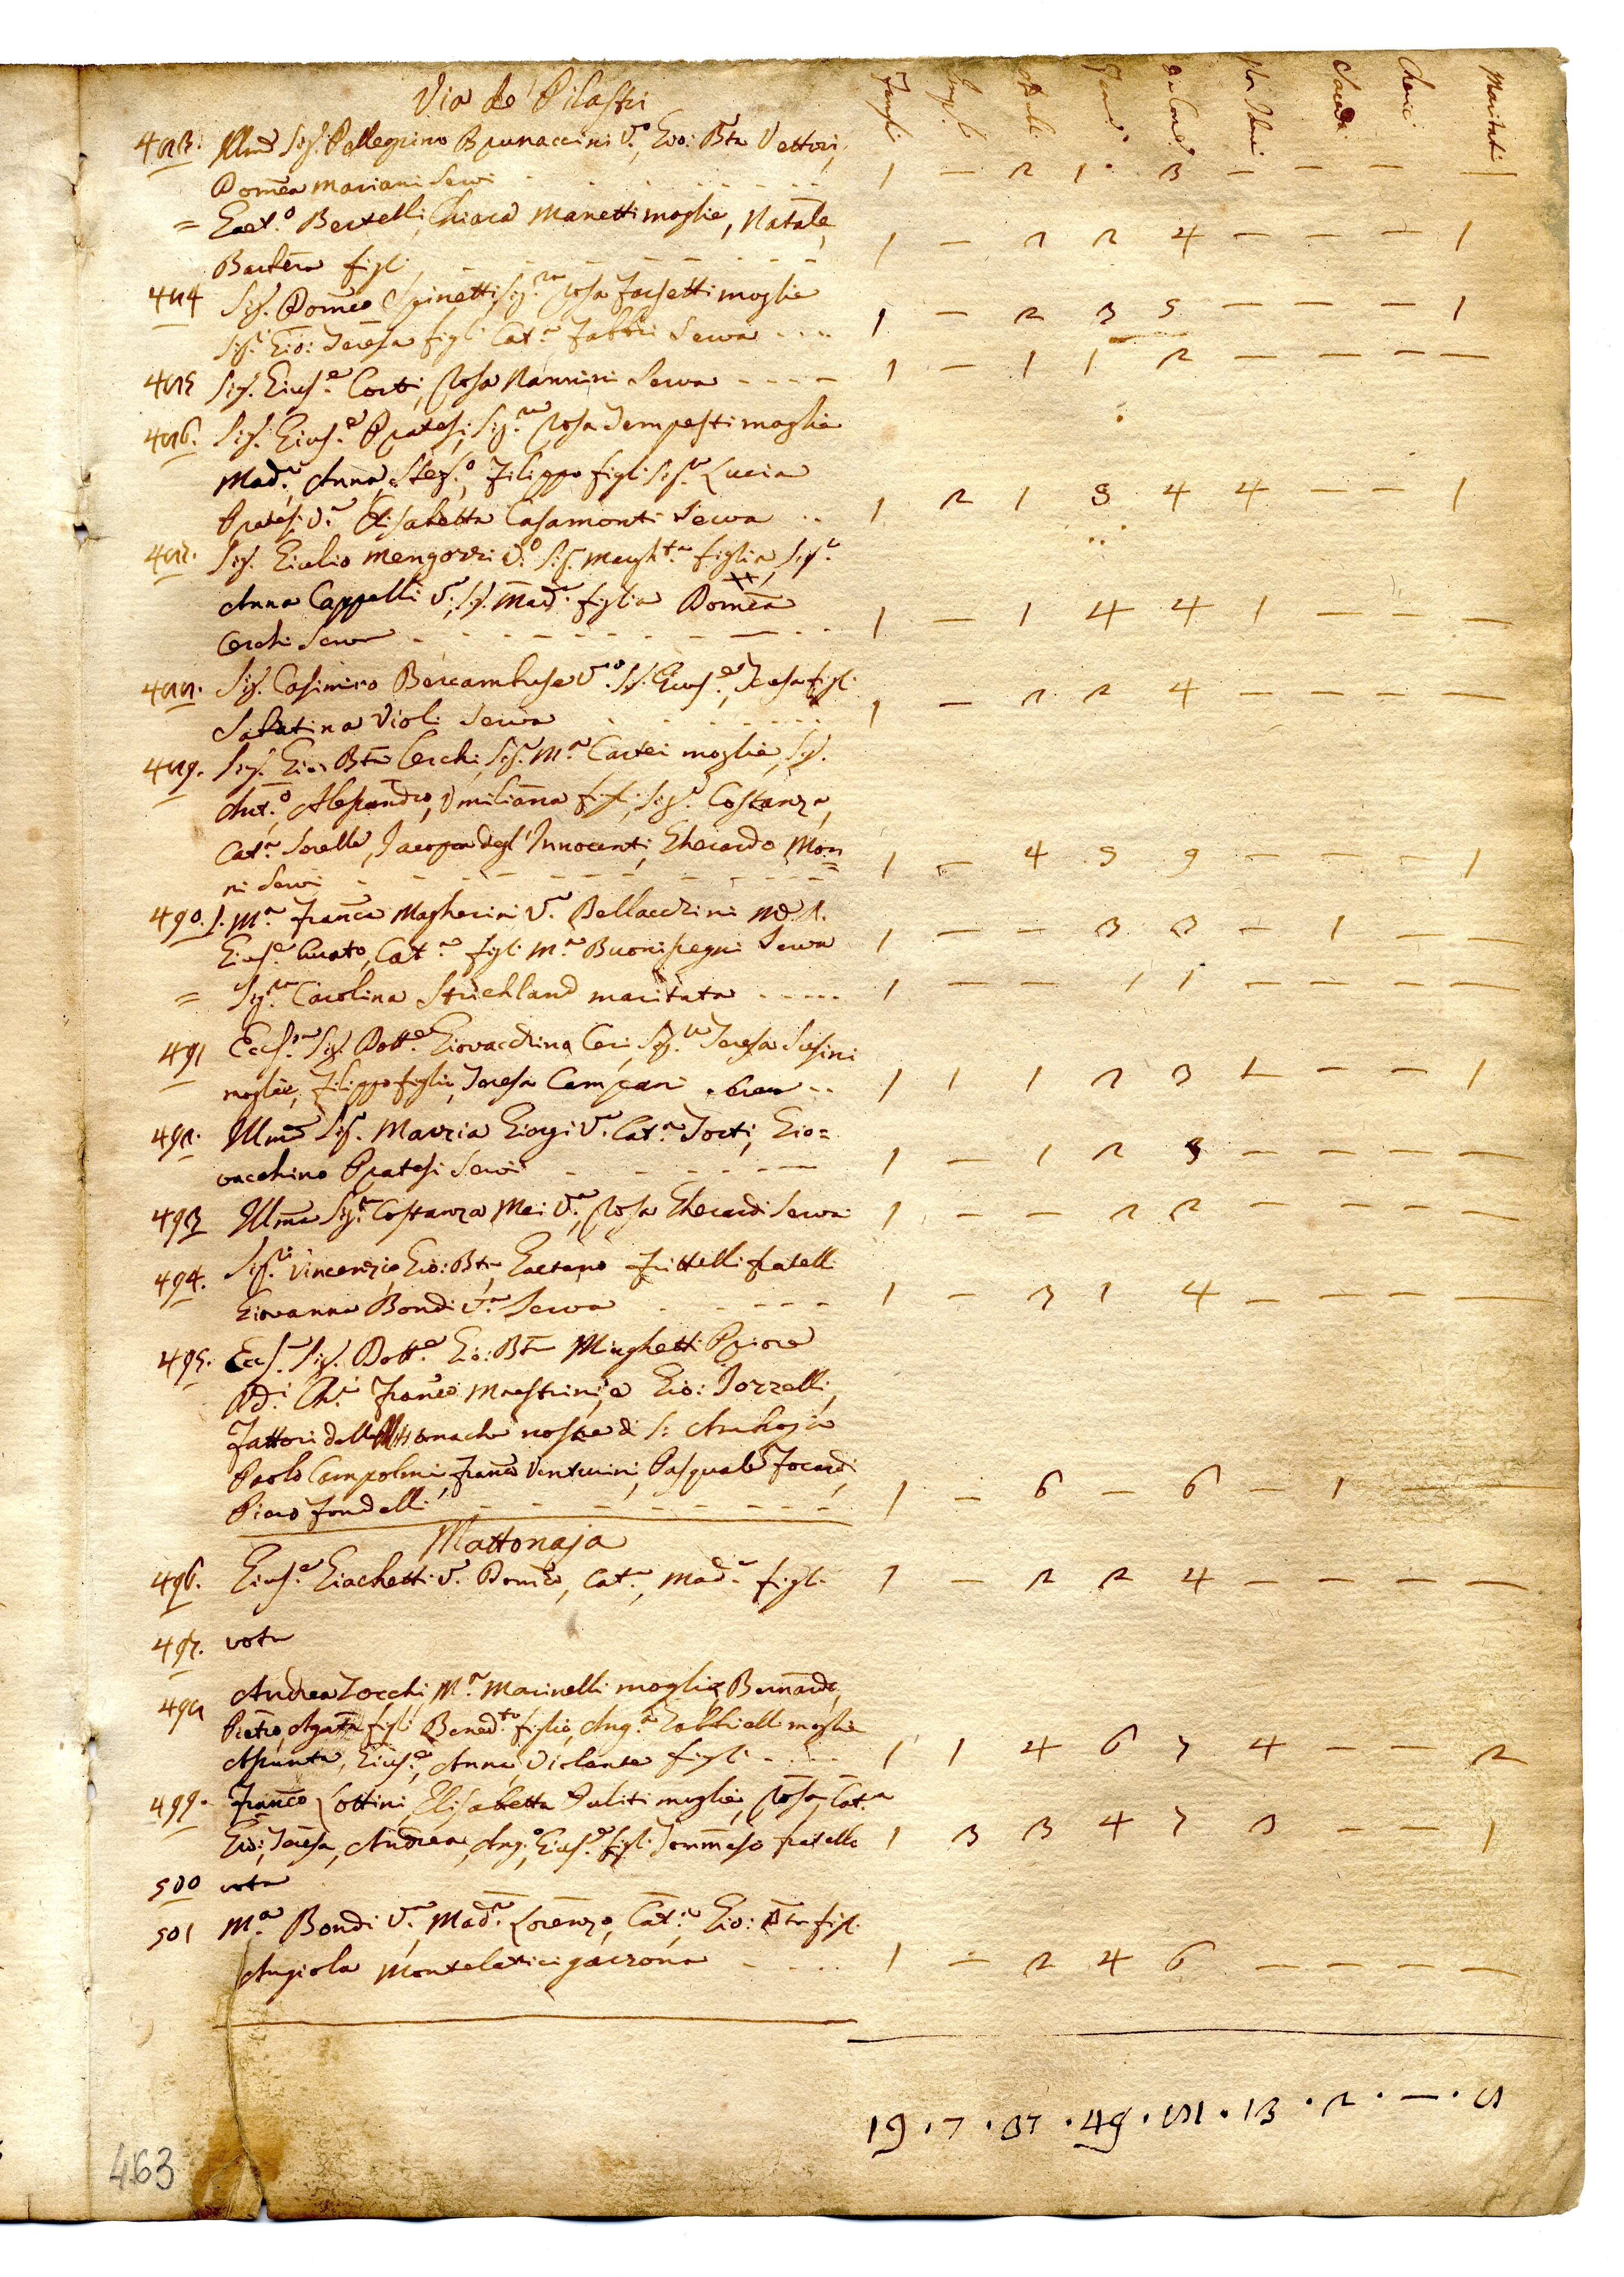 Via de' Pilastri
Famigl. Impub. Masch. Fem. Da Com. Non Com. Sacerd. Cherici Maritati
483. Illmo Sig. Pellegrino Brunaccini Vo., Gio: Bta Vettori,
Domca Mariani Servi - - - 1 — 2 1 · 3 — — — —
= Gaet.o Bertelli, Chiara Manetti moglie, Natale,
Barbera figli - - - 1 — 2 2 4 — — — 1
484 Sig. Domco Spinetti, Sig.ra Rosa Falsetti moglie
Sig. Gio: Teresa figli Cat.a Fabbri Serva - - - 1 — 2 3 5 — — — 1
485 Sig. Gius.e Corti, Rosa Nannini Serva - - - 1 — 1 1 2 — — — —
486. Sig. Gius.e Pratesi, Sig.ra Rosa Tempesti moglie
Mad.a, Anna, Stef.o, Filippo figli Sig.a Lucia
Pratesi V.a Elisabetta Casamonti Serva - - 1 2 1 5 4 4 — — 1
487. Sig. Giulio Mengozzi V.o Sig. Margh.ta figlia, Sig.a
Anna Cappelli V.a, Sig. Mad.a figlia Domca
Cerchi Serva - - - 1 — 1 4 4 1 — — —
488. Sig. Casimiro V.o Sig. Gius.e, Teresa figli
Sabatina Violi Serva - - - 1 — 2 2 4 — — — —
489. Sig. Gio: Bta Cerchi, Sig. M.a Cartei moglie, Sig.
Ant.o, Alessandro, Umiliana figli, Sig.a Costanza,
Cat.a Sorelle, Jacopa degl' Innocenti, Gherardo Mon=
ni Servi - - - 1 — 4 5 9 — — — 1
490. S. M.a Franca Magherini V.a Bellaccini M. R.
Gius.e Curato, Cat.a figli M.a Buonsegni Serva 1 — — 3 3 — 1 — —
= Sig.ra Carolina Strichland maritata - - - 1 — — 1 1 — — — —
491 Ecc.mo Sig. Dott.e Giovacchino Ceri, Sig.ra Teresa Susini
moglie, Filippo figlio, Teresa Campani Serva - - 1 1 1 2 3 1 — — 1
492. Illma Sig. Maria Giorgi V.a Cat.a Torti, Gio=
vacchino Pratesi Servi - - - 1 — 1 2 3 — — — —
493 Illma Sig.ra Costanza Mei V.a, Rosa Gherardi Serva 1 — — 2 2 — — — —
494. Sig.ri Vincenzio, Gio: Bta Gaetano Frittelli fratelli
Giovanna Bondi V.a Serva - - - 1 — 3 1 4 — — — —
495. Ecc.mo Sig. Dott.e Gio: Bta Minghetti Priore
Franco Maestrini, e Gio: Tozzelli,
Fattori delle Monache nostre di S: Ambrogio
Paolo Campolmi, Franco Venturini, Pasquale Focardi,
Piero Fondelli - - - 1 — 6 — 6 — 1 — —
Mattonaja
496. Gius.e Giachetti V.o Domco, Cat.a, Mad.a figli 1 — 2 2 4 — — — —
497. vota
498 Andrea Zocchi, M.a Marinelli moglie, Bernardo,
Pietro, Agata figli Bened.to figlio, Ang.a Gabbrielli moglie
Assunta, Gius.e, Anna, Violante figli - - - 1 1 4 6 7 4 — — 2
499. Franco Lottini, Elisabetta Puliti moglie, Rosa, Cat.a
Gio:, Teresa, Andrea, Ang.o, Gius.e figli Tommaso fratello 1 3 3 4 7 3 — — 1
500 vota
501 M.a Bondi V.a, Mad.a Lorenzo, Cat.a, Gio: Bta figli.
Angiola Montelatici garzona - - - 1 — 2 4 6 — — — —
19 · 7 · 37 · 49 · 81 · 13 · 2 · — · 8
463